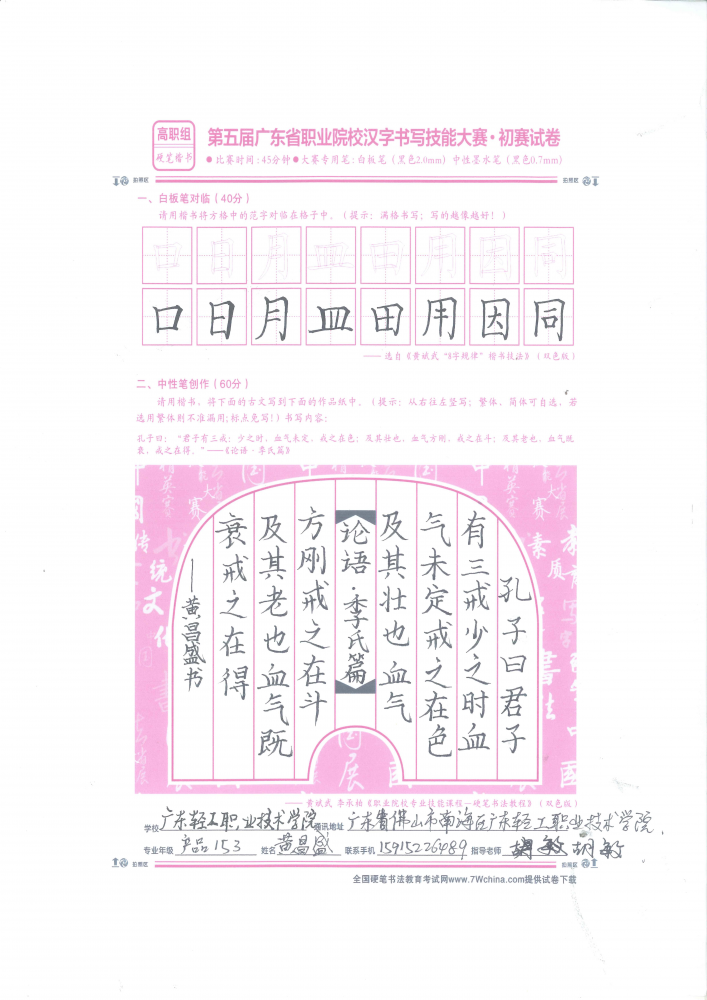 高职组
硬笔楷书
第五届广东省职业院校汉字书写技能大赛·初赛试卷
●比赛时间:45分钟●大赛专用笔:白板笔(黑色2.0mm)中性墨水笔(黑色0.7mm)
拍照区
拍照区
一、白板笔对临(40分)
请用楷书将方格中的范字对临在格子中。(提示:满格书写;写的越像越好!)
口日月皿田用因同
口日月皿田用因同
——选自《黄斌式“8字规律”楷书技法》(双色版)
二、中性笔创作(60分)
请用楷书,将下面的古文写到下面的作品纸中。(提示:从右往左竖写;繁体、简体可自选,若
选用繁体则不准漏用;标点免写!)书写内容:
孔子曰:“君子有三戒:少之时,血气未定,戒之在色;及其壮也,血气方刚,戒之在斗;及其老也,血气既
衰,戒之在得。”——《论语·季氏篇》
孔子曰君子
有三戒少之时血
气未定戒之在色
及其壮也血气
论语·季氏篇
方刚戒之在斗
及其老也血气既
衰戒之在得
——黄昌盛书
——黄斌式 李承柏《职业院校专业技能课程--硬笔书法教程》(双色版)
学校 广东轻工职业技术学院 通讯地址 广东省佛山市南海区广东轻工职业技术学院
专业年级 产品153 姓名 黄昌盛 联系手机 15915226489 指导老师 胡敏
拍照区
拍照区
全国硬笔书法教育考试网www.7Wchina.com提供试卷下载